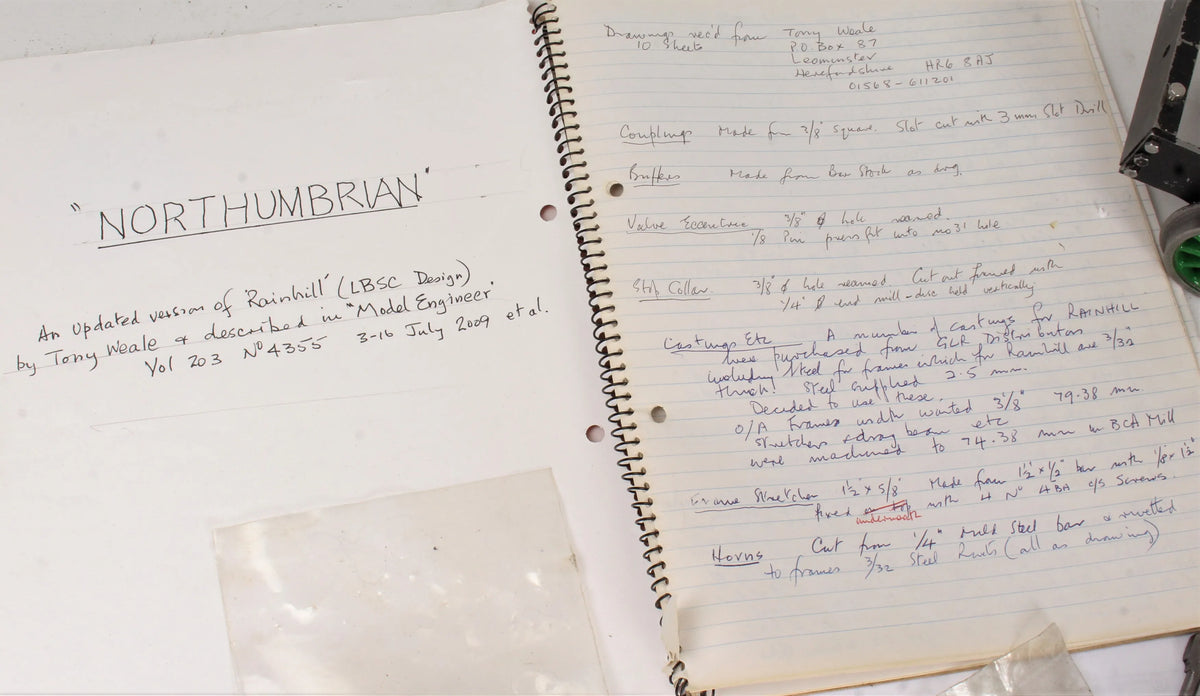 "NORTHUMBRIAN"
An Updated version of 'Rainhill' (LBSC Design)
by Tony Weale & described in "Model Engineer"
Vol 203 Nº 4355 3-16 July 2009 et al.
Drawings rec'd from Tony Weale
10 Sheets P.O. Box 87
Leominster
Herefordshire HR6 8AJ
01568-611201
Couplings Made from 3/8" square. Slot cut with 3 mm Slot Drill
Buffers Made from Bar Stock as drg.
Valve Eccentric 3/8" ϕ hole reamed.
1/8 Pin press fit into no 31 hole
Stop Collar. 3/8 ϕ hole reamed. Cut out formed with
1/4" ϕ end mill - disc held vertically
Castings Etc A number of castings for RAINHILL
were purchased from GLR Distributors
including steel for frames which for Rainhill are 3/32"
thick! Steel supplied 2.5 mm.
Decided to use these.
O/A Frames width wanted 3 1/8" 79.38 mm
Stretchers & drag beam etc
were machined to 74.38 mm in BCA Mill
Frame Stretcher 1½" x 5/8" Made from 1½" x ½" bar with 1/8 x 1½"
fixed on top with 4 Nº 4BA c/s Screws.
underneath
Horns Cut from 1/4" Mild Steel bar & rivetted
to frames 3/32 Steel Rivets (all as drawing)